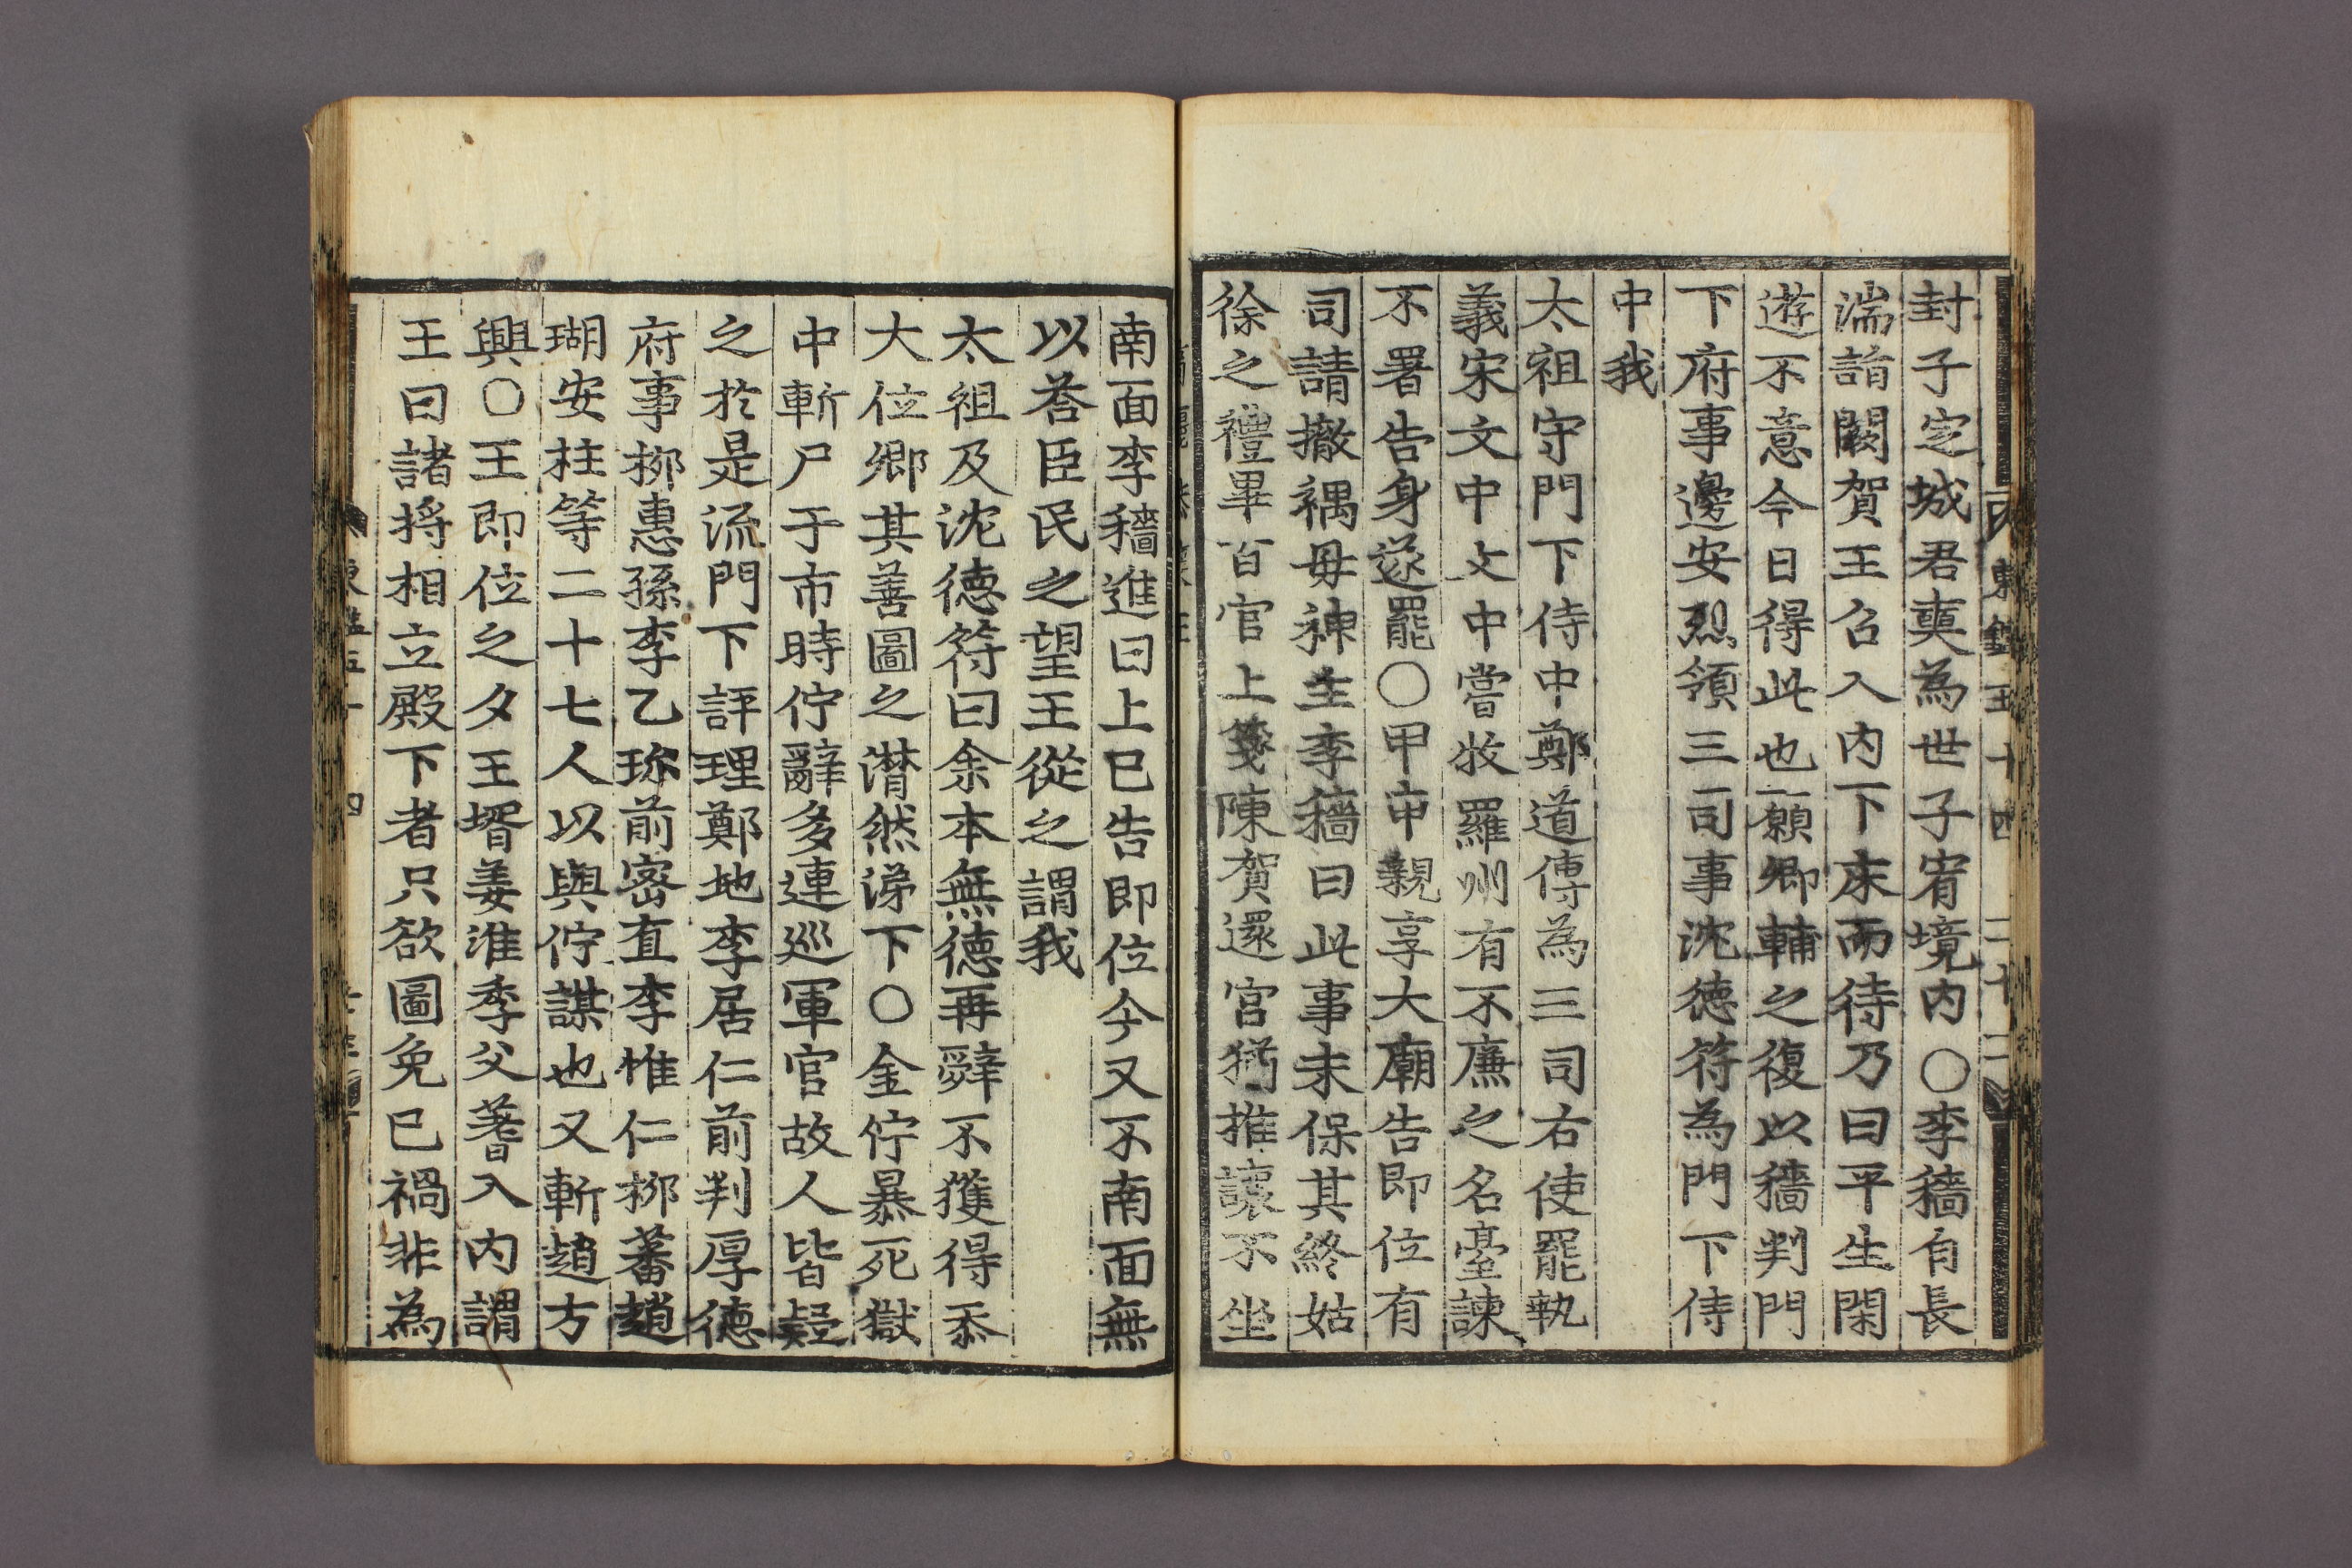 封子定城君奭為世子宥境內○李穡自長
湍詣闕賀王召入內下床而待乃曰平生閑
遊不意今日得此也願卿輔之復以穡判門
下府事邊安烈領三司事沈德符為門下侍
中我
太祖守門下侍中鄭道傳為三司右使罷執
義宋文中文中嘗牧羅州有不廉之名臺諫
不署告身遂罷○甲申親享大廟告即位有
司請撤禑毋神主李穡曰此事未保其終姑
徐之禮畢百官上箋陳賀還宮猶推讓不坐
南面李穡進曰上已告即位今又不南面無
以荅臣民之望王從之謂我
太祖及沈德符曰余本無德再辭不獲得忝
大位卿其善圖之潸然涕下○金佇暴死獄
中斬尸于市時佇辭多連巡軍官故人皆疑
之於是流門下評理鄭地李居仁前判厚德
府事柳惠孫李乙珎前密直李惟仁柳蕃趙
瑚安柱等二十七人以與佇謀也又斬趙方
興○王即位之夕王壻姜淮季父蓍入內謂
王曰諸將相立殿下者只欲圖免已禍非為